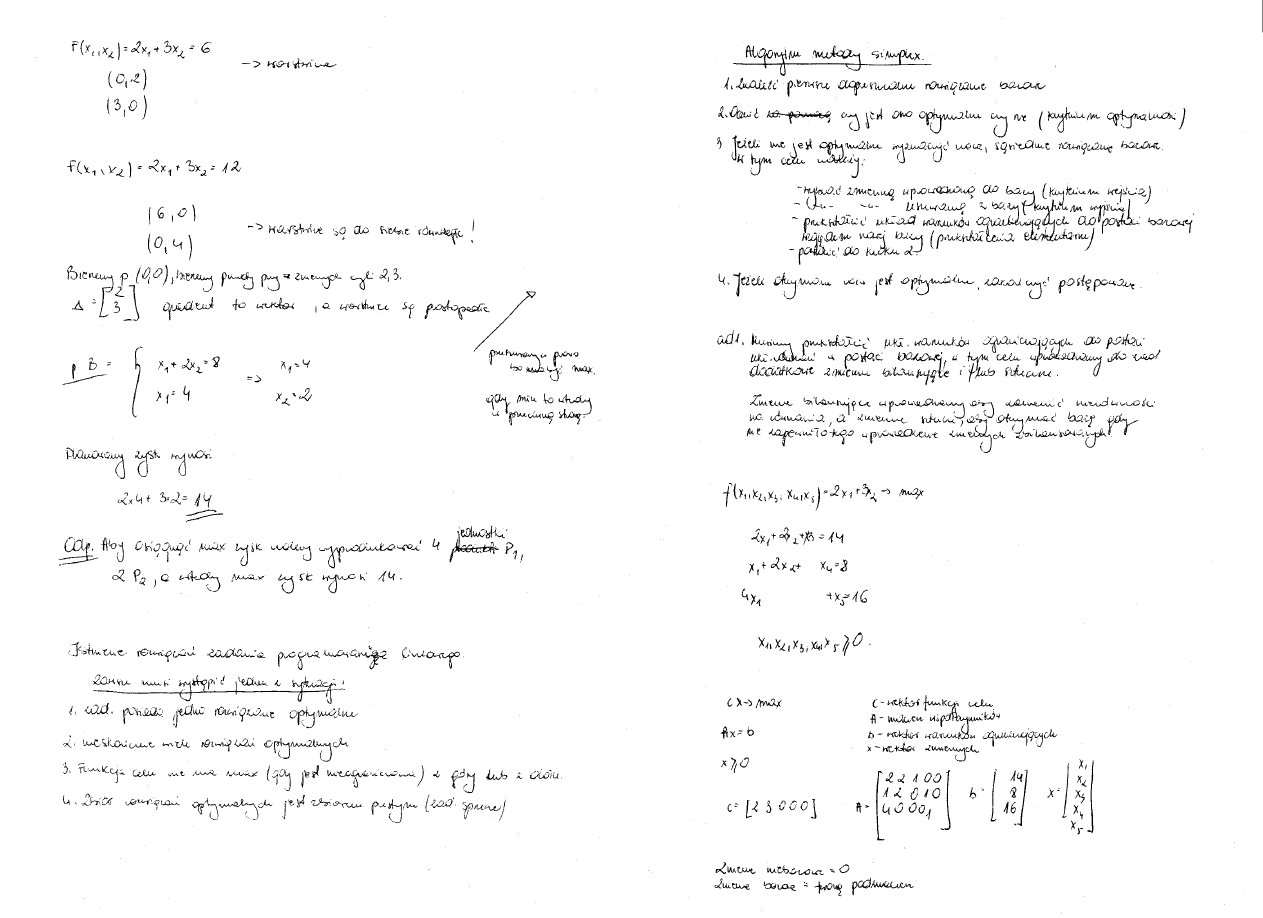 F(x₁,x₂)=2x₁+3x₂=6
(0,2) -> warstwica
(3,0)
F(x₁,x₂)=2x₁+3x₂=12
(6,0)
(0,4) -> warstwice są do siebie równoległe!
Bierzemy p (0,0), bierzemy punkty przy zmiennych czyli 2,3.
Δ = [2 3] gradient to wektor, a warstwice są prostopadłe
przesuwamy w prawo
bo ma być max.
gdy min to wtedy
w przeciwną stronę
p B = { x₁+2x₂=8 => x₁=4
x₁=4 x₂=2
Planowany zysk wynosi
2·4+3·2=14
Odp. Aby osiągnąć max zysk należy wyprodukować 4 jednostki P₁,
2 P₂, a wtedy max zysk wynosi 14.
Istnienie rozwiązań zadania programowania liniowego.
Zawsze musi wystąpić jedna z sytuacji:
1. zad. posiada jedno rozwiązanie optymalne
2. nieskończenie wiele rozwiązań optymalnych
3. Funkcja celu nie ma max (gdy jest nieograniczona) z góry lub z dołu.
4. Zbiór rozwiązań optymalnych jest zbiorem pustym (zad. sprzeczne)
Algorytm metody simplex.
1. Znaleźć pierwsze dopuszczalne rozwiązanie bazowe
2. Ocenić czy jest ono optymalne czy nie (kryterium optymalności)
3. Jeżeli nie jest optymalne wyznaczyć nowe, sąsiednie rozwiązanie bazowe.
W tym celu należy:
- wybrać zmienną wprowadzaną do bazy (kryterium wejścia)
- -"- -"- usuwaną z bazy (kryterium wyjścia)
- przekształcić układ warunków ograniczających do postaci bazowej
względem nowej bazy (przekształcenia elementarne)
- powrócić do kroku 2.
4. Jeżeli otrzymane rozw. jest optymalne, zakończyć postępowanie.
ad 1. Musimy przekształcić ukł. warunków ograniczających do postaci
ukł. równań w postaci bazowej, w tym celu wprowadzamy do zad.
dodatkowe zmienne bilansujące i/lub sztuczne.
Zmienne bilansujące wprowadzamy aby zamienić nierówności
na równania, a zmienne sztuczne, aby otrzymać bazę gdy
nie zapewniło tego wprowadzenie zmiennych zbilansowanych.
f(x₁,x₂,x₃,x₄,x₅)=2x₁+3x₂ -> max
2x₁+2x₂+x₃=14
x₁+2x₂+ x₄=8
4x₁ +x₅=16
x₁,x₂,x₃,x₄,x₅ ⩾ 0.
cx->max c - wektor funkcji celu
A - macierz współczynników
Ax=b b - wektor warunków ograniczających
x - wektor zmiennych
x⩾0
c=[2 3 0 0 0] A=[2 2 1 0 0 b=[14 x=[x₁
1 2 0 1 0 8 x₂
4 0 0 0 1] 16] x₃
x₄
x₅]
Zmienne niebazowe = 0
Zmienne bazowe = prawą